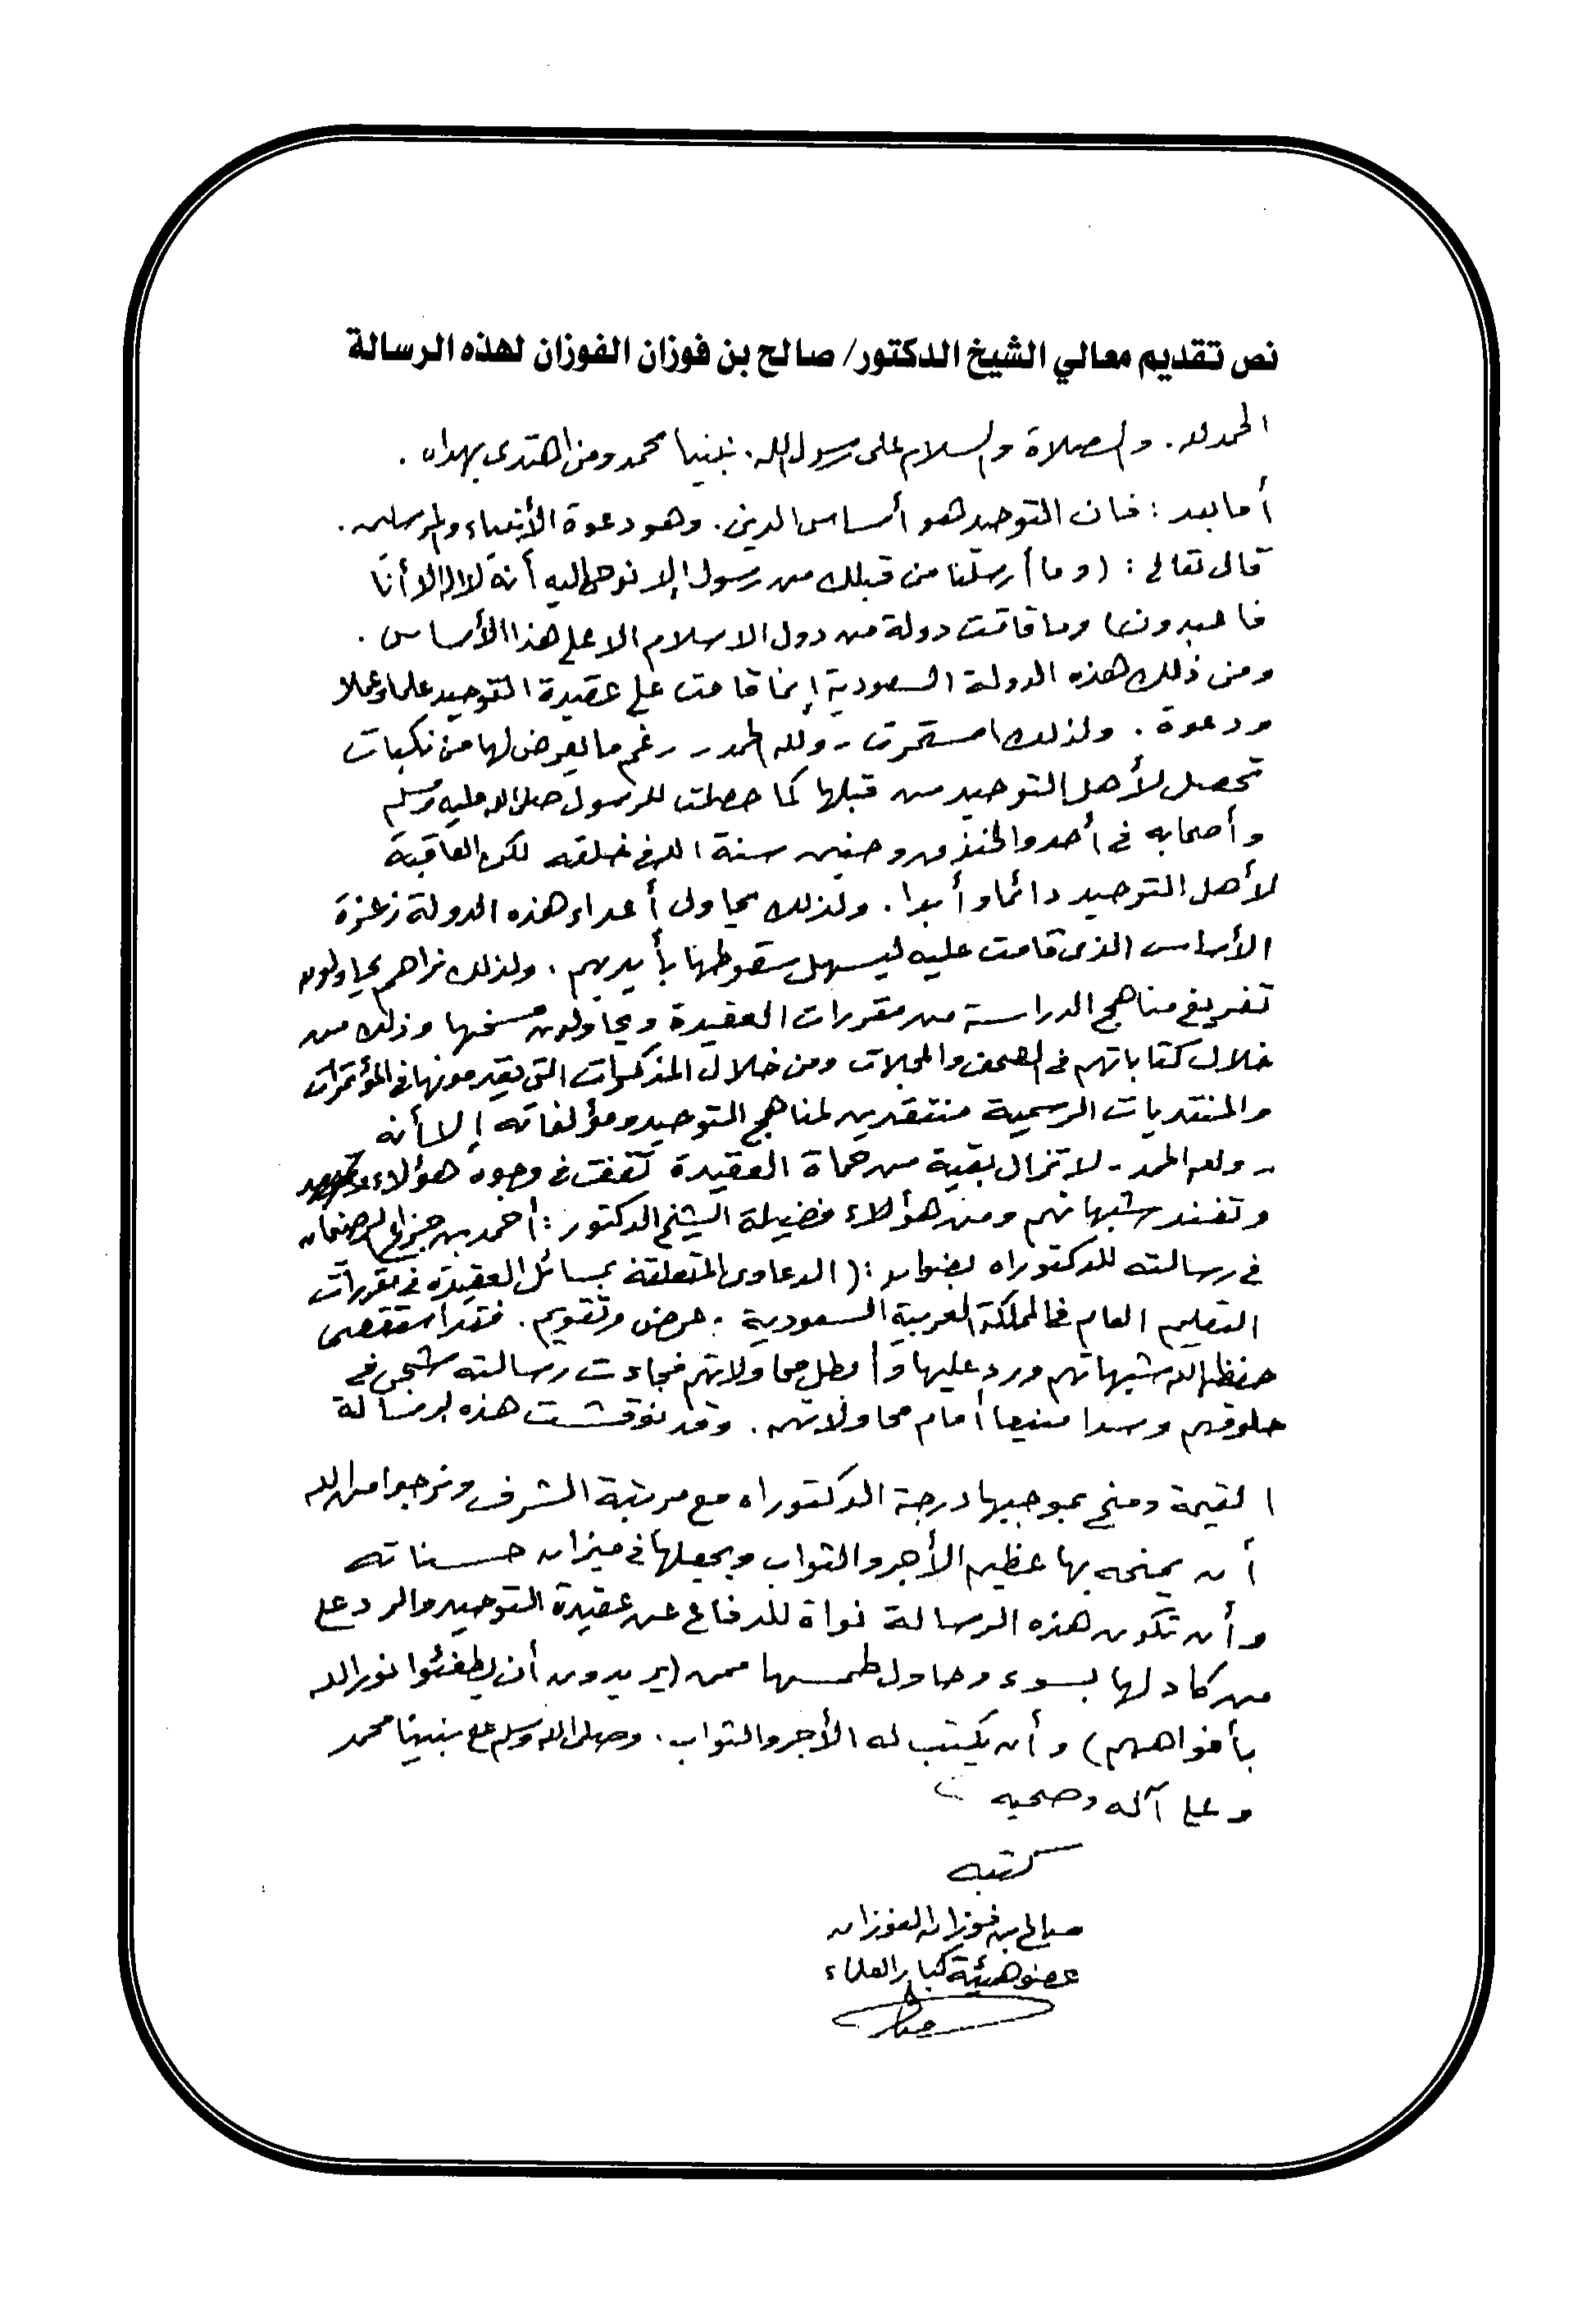 نص تقديم معالي الشيخ الدكتور/ صالح بن فوزان الفوزان لهذه الرسالة
الحمد لله. والصلاة والسلام على رسول الله. نبينا محمد ومن اهتدى بهداه.
أما بعد: فان التوحيد هو أساس الدين. وهو دعوة الأنبياء والمرسلين.
قال تعالى: (وما أرسلنا من قبلك من رسول إلا نوحي إليه أنه لا اله الا أنا
فاعبدون) وما قامت دولة من دول الاسلام الا على هذا الأساس.
ومن ذلك هذه الدولة السعودية إنما قامت على عقيدة التوحيد علما وعملا
ودعوة. ولذلك استمرت - ولله الحمد - رغم ما يعرض لها من نكبات
تحصل لأهل التوحيد من قبلها كما حصلت للرسول صلى الله عليه وسلم
وأصحابه في أحد والخندق وحنين سنة الله في خلقه لكن العاقبة
لأهل التوحيد دائما وأبدا. ولذلك يحاول أعداء هذه الدولة زعزعة
الأساس الذي قامت عليه ليسهل سقوطها بأيديهم. ولذلك نراهم يحاولون
تفريغ مناهج الدراسة من مقررات العقيدة ويحاولون مسخها وذلك من
خلال كتاباتهم في الصحف والمجلات ومن خلال المذكرات التي يقدمونها في المؤتمرات
والمنتديات الرسمية منتقدين لمناهج التوحيد ومؤلفاته إلا أنه
- ولله الحمد - لا تزال بقية من حماة العقيدة تقف في وجوه هؤلاء
وتفند شبهاتهم ومن هؤلاء فضيلة الشيخ الدكتور: أحمد بن جزاع الرضيمان
في رسالته للدكتوراه بعنوان: (الدعاوى المتعلقة بمسائل العقيدة في مقررات
التعليم العام في المملكة العربية السعودية. عرض وتقويم. فقد استقصى
حفظه الله شبهاتهم ورد عليها وأبطل محاولاتهم فجاءت رسالته شجى في
حلوقهم وسدا منيعا أمام محاولاتهم. وقد نوقشت هذه الرسالة
القيمة ومنح بموجبها درجة الدكتوراه مع مرتبة الشرف ونرجوا من الله
أن يمنحه بها عظيم الأجر والثواب ويجعلها في ميزان حسناته
وأن تكون هذه الرسالة نواة للدفاع عن عقيدة التوحيد والرد على
من كاد لها بسوء وحاول طمسها ممن (يريدون أن يطفئوا نور الله
بأفواههم) وأن يكتب له الأجر والثواب. وصلى الله وسلم على نبينا محمد
وعلى آله وصحبه
كتبه
صالح بن فوزان الفوزان
عضو هيئة كبار العلماء